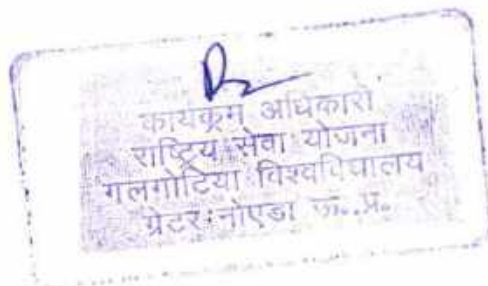 कार्यक्रम अधिकारी
राष्ट्रिय सेवा योजना
गलगोटिया विश्वविद्यालय
ग्रेटर नोएडा उ.. प्र.